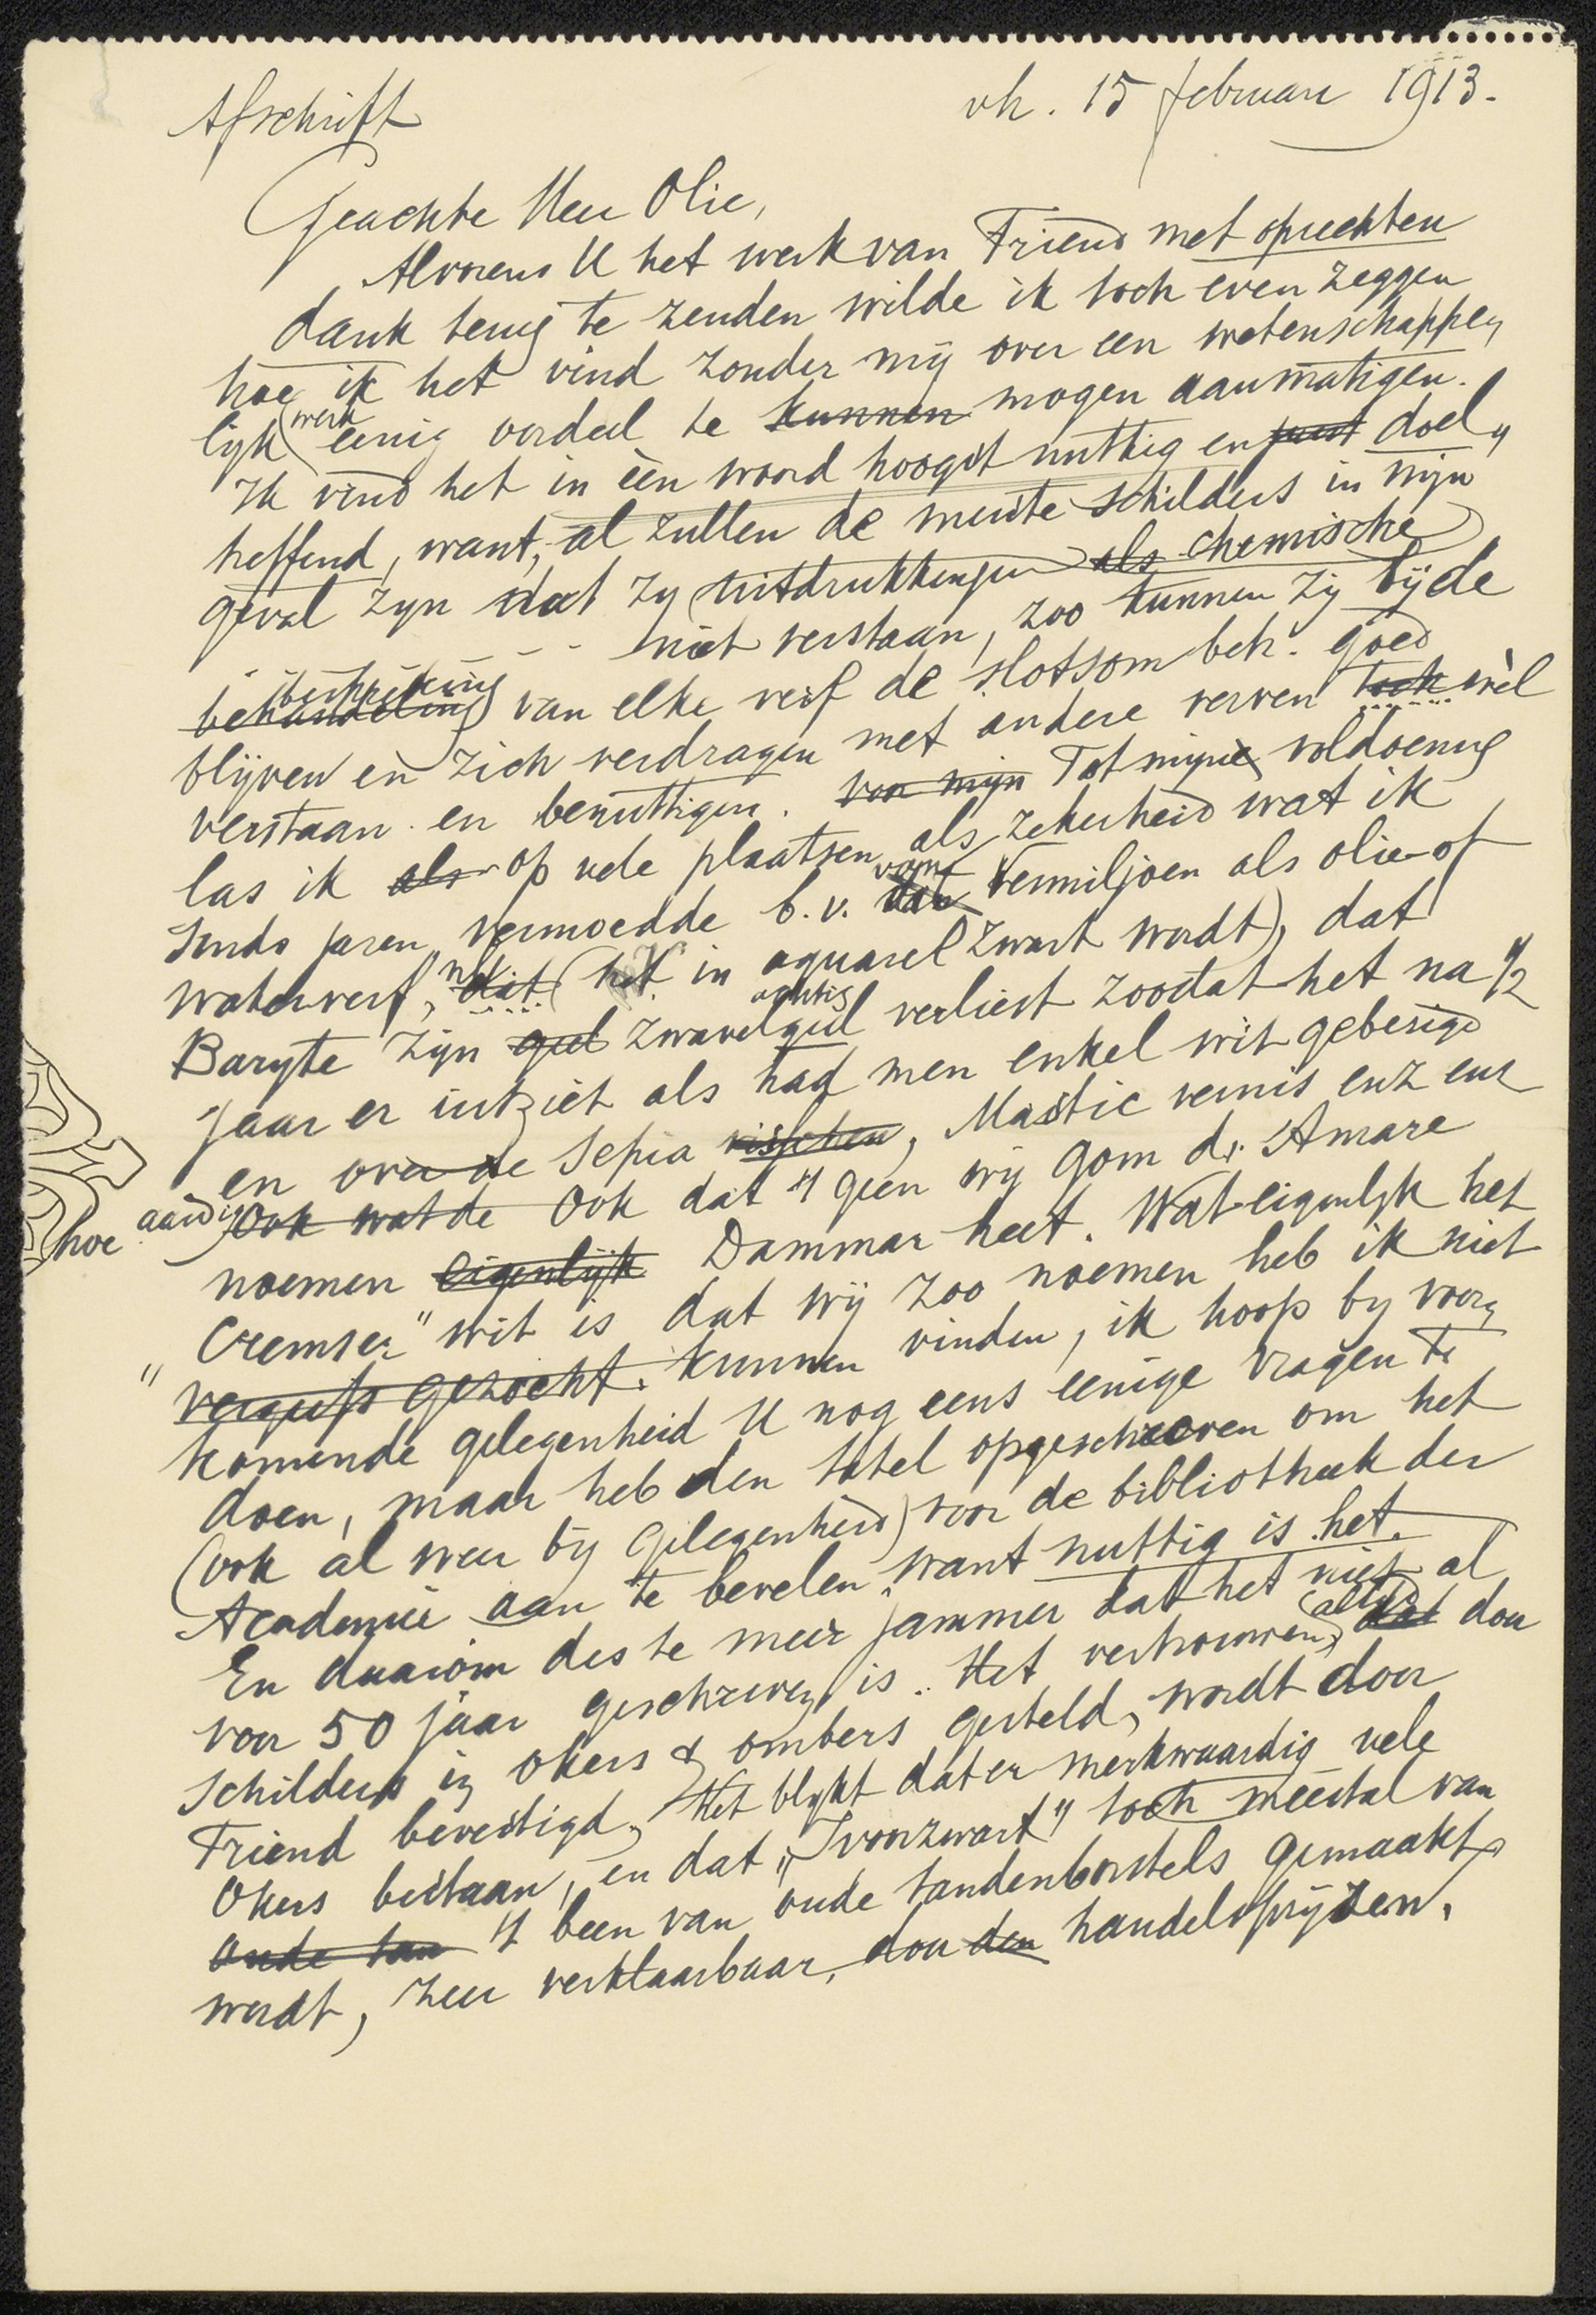 Afschrift
vh. 15 februari 1913.
Geachte Heer Olie,
Alvorens U het werk van Friend met oprechten
dank terug te zenden wilde ik toch even zeggen
hoe ik het vind zonder mij over een wetenschappe„
lijk werk eenig oordeel te kunnen mogen aanmatigen.
Ik vind het in één woord hoogst nuttig en juist doel„
treffend, want, al zullen de meeste schilders in mijn
geval zijn dat zij uitdrukkingen als chemische
- - - - - niet verstaan, zoo kunnen zij bij de
behandeling beschrijving van elke verf de slotsom betr. goed
blijven en zich verdragen met andere verven toch wèl
verstaan en benuttigen. voor mijn Tot mijne voldoening
las ik als op vele plaatsen als zekerheid wat ik
sinds jaren vermoedde b.v. dat Vermiljoen als olie of
waterverf, dat (het in aquarel zwart wordt), dat
Baryte zijn geel zwavelachtig geel verliest zoodat het na ½
jaar er uitziet als had men enkel wit gebesigd
en over de Sepia visschen, Mastic vernis enz enz
hoe aardig Ook wat de Ook dat 't geen wij gom d. Amare
noemen eigenlijk Dammar heet. Wat eigenlijk het
„Cremser" wit is dat wij zoo noemen heb ik niet
vergeefs gezocht. kunnen vinden, ik hoop bij voor„
komende gelegenheid U nog eens eenige vragen te
doen, maar heb den titel opgeschreven om het
(ook al weer bij gelegenheid) voor de bibliotheek der
Academie aan te bevelen want nuttig is het.
En daarom des te meer jammer dat het niet al
voor 50 jaar geschreven is. Het vertrouwen, dat altijd door
schilders in okers & ombers gesteld, wordt door
Friend bevestigd. Het blijkt dat er merkwaardig vele
Okers bestaan, en dat „Ivoorzwart" toch meestal van
oude tan 't been van oude tandenborstels gemaakt
wordt, zeer verklaarbaar, door den handelsprijzen.